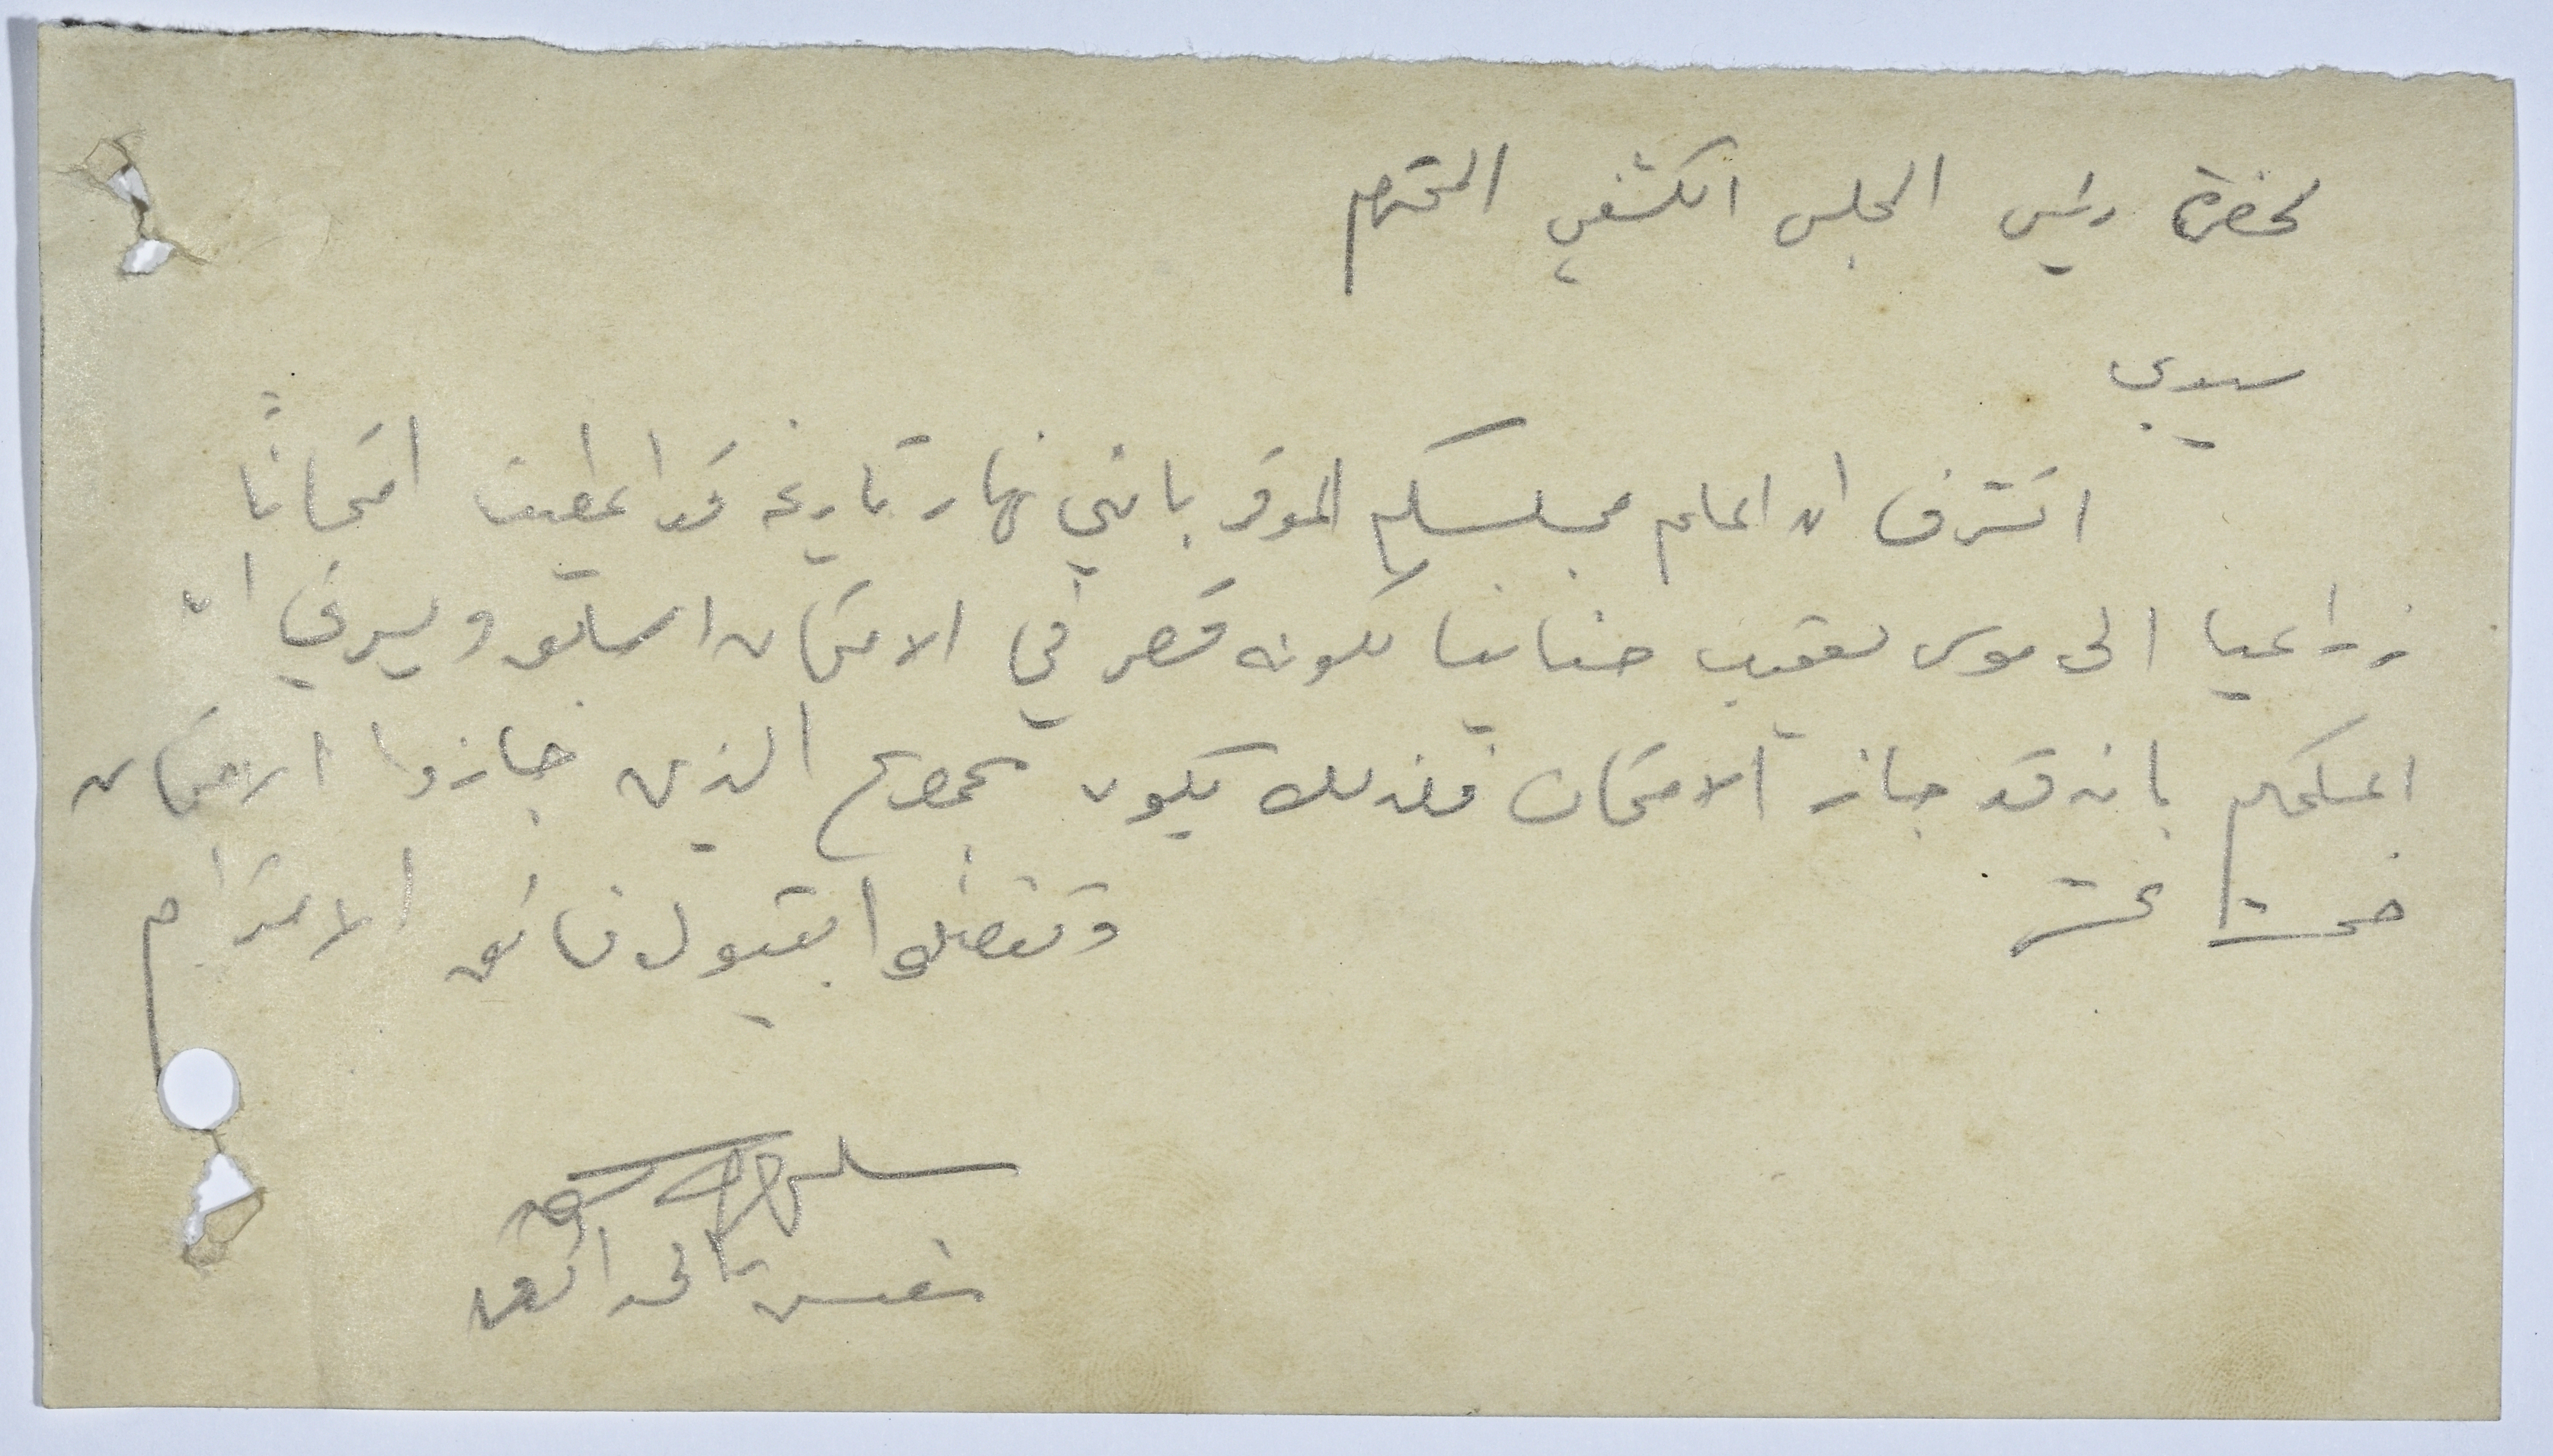 لحضرة رئيس المجلس الكشفي المحترم
سيدي
اتشرف ان اعلم مجلسكم الموقر بانني نهار تاريخه قد اعطيت امتحاناً
زراعيا الى موسى يعقوب حنانيا لكونه قصر في الامتحان السابق ويسرني ان
اعلمكم بانه قد جاز الامتحان فلذلك يكون مجموع الذين جازوا الامتحان
خمسة عشر
وتفضلوا بقبول فائق الاحترام